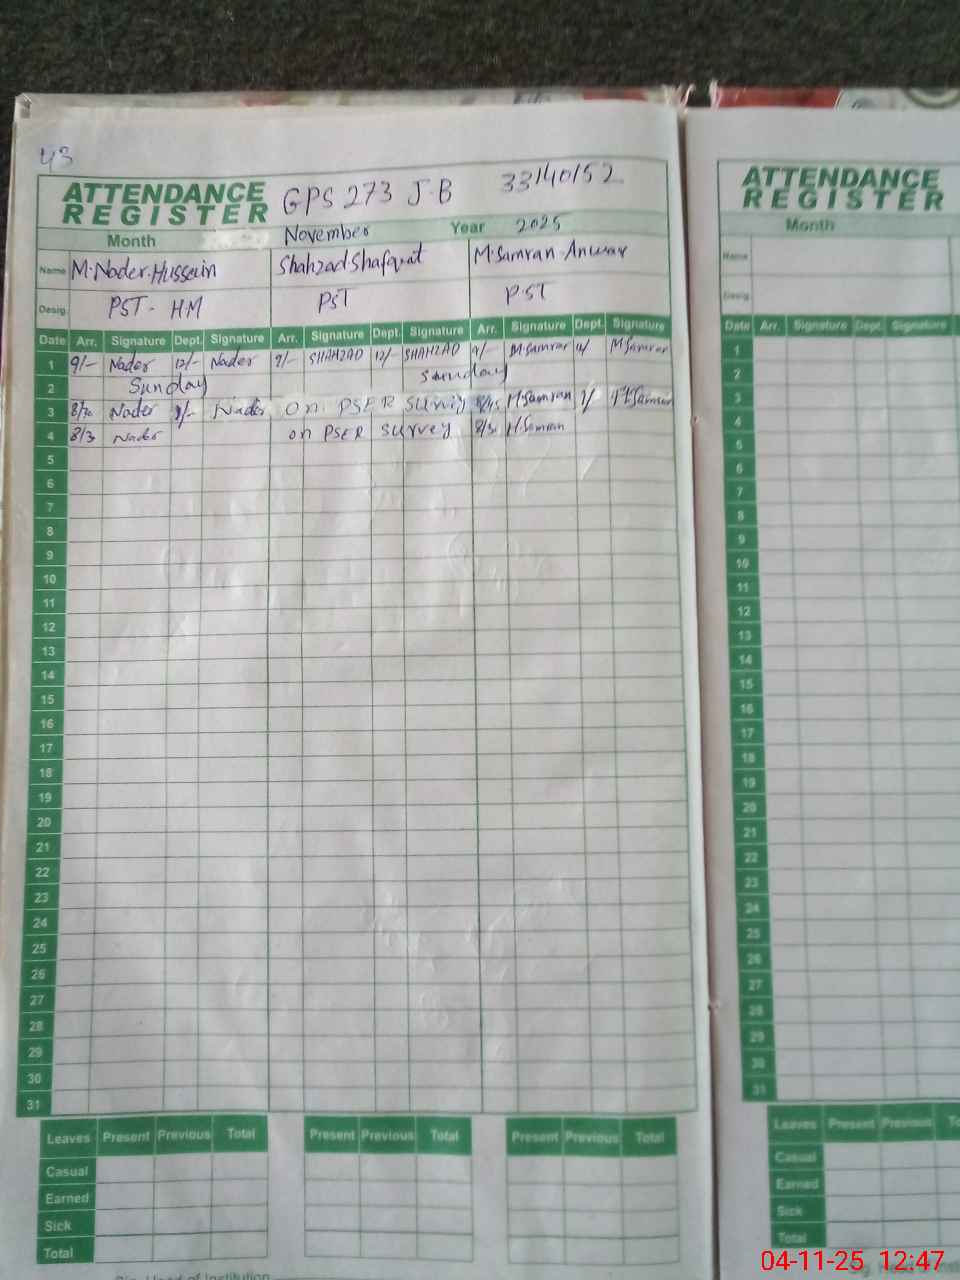 43
ATTENDANCE REGISTER GPS 273 J.B 33140152
Month November Year 2025
Name M.Nader.Hussain Shahzad Shafqat M.Samran Anwar
Desig. PST - HM PST PST
Date Arr. Signature Dept. Signature Arr. Signature Dept. Signature Arr. Signature Dept. Signature
1 9/- Nader 12/- Nader 9/- SHAHZAD 12/- SHAHZAD 9/- M.Samran M.Samran
2 Sunday Sunday
3 8/30 Nader Nader on PSER 8/45 M.Samran M.Samran
4 8/3 Nader on PSER survey 8/30 M.Samran
5
6
7
8
9
10
11
12
13
14
15
16
17
18
19
20
21
22
23
24
25
26
27
28
29
30
31
Leaves Present Previous Total Present Previous Total Present Previous Total
Casual
Earned
Sick
Total
ATTENDANCE REGISTER
Month
Name
Desig.
Date Arr. Signature Dept. Signature
1
2
3
4
5
6
7
8
9
10
11
12
13
14
15
16
17
18
19
20
21
22
23
24
25
26
27
28
29
30
31
Leaves Present Previous
Casual
Earned
Sick
Total
04-11-25 12:47